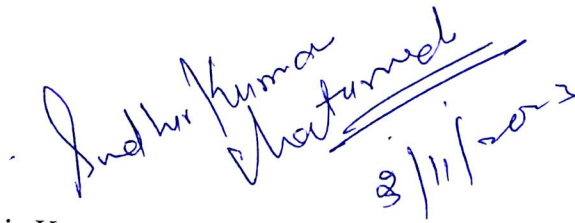 Sudhir Kumar
Chaturvedi
3/11/2023